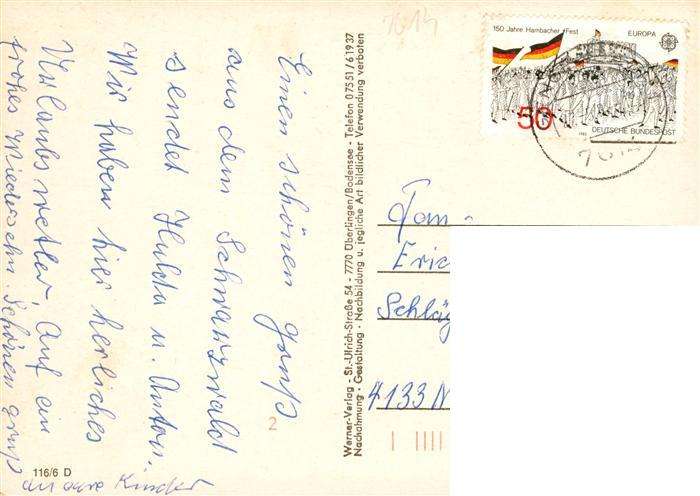 Einen schönen gruß
aus dem Schwarzwald
sendet Hulda u. Anton.
Wir haben hier herliches
Urlaubswetter, Auf ein
frohes Wiedersehn. Schönen gruß
an eure Kinder
116/6 D
2
Werner-Verlag - St.-Ulrich-Straße 54 - 7770 Überlingen/Bodensee - Telefon 07551/61937
Nachahmung - Gestaltung - Nachbildung u. jegliche Art bildlicher Verwendung verboten
150 Jahre Hambacher Fest
EUROPA
50
DEUTSCHE BUNDESPOST
Fam.
Eric
Schläg
4133 N